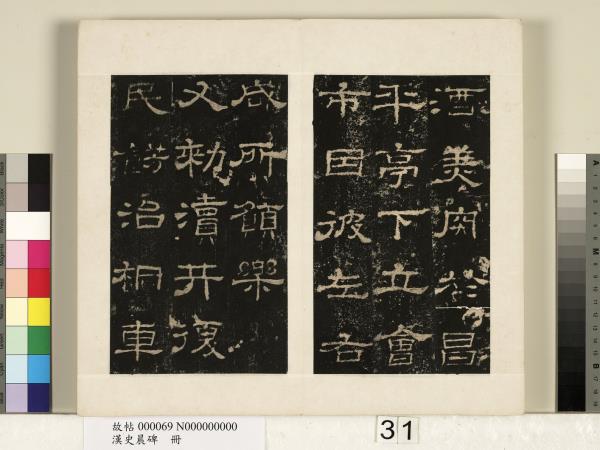 酒美肉於昌
平亭下立會
市因彼左右
咸所願樂
又勑瀆井復
民餝治桐車
故帖 000069 N000000000
漢史晨碑 冊
31